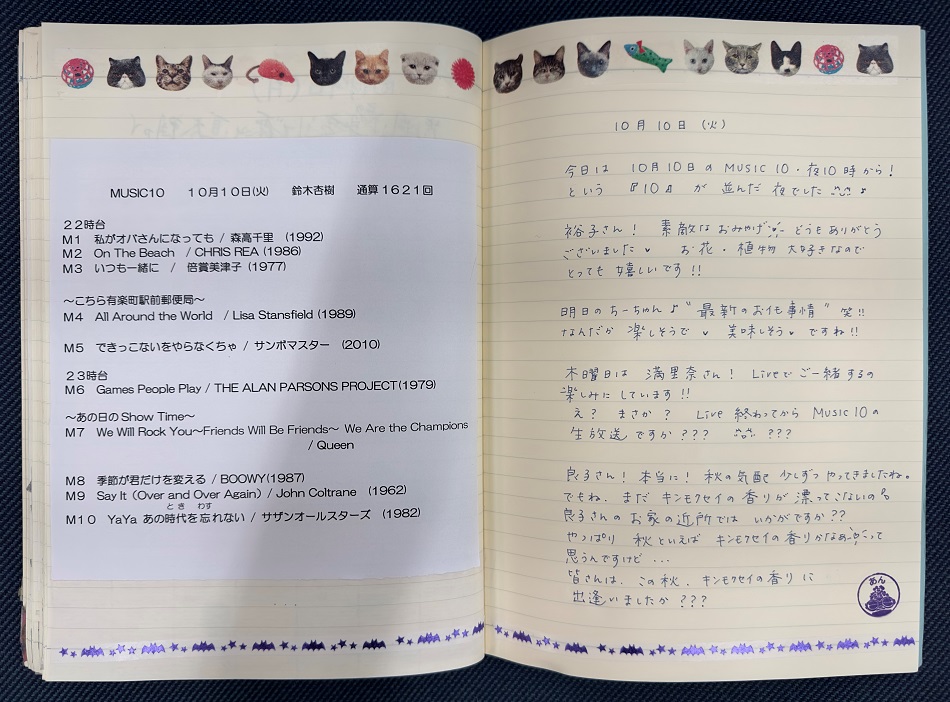 MUSIC10 10月10日(火) 鈴木杏樹 通算1621回
22時台
M1 私がオバさんになっても / 森高千里 (1992)
M2 On The Beach / CHRIS REA (1986)
M3 いつも一緒に / 倍賞美津子 (1977)
～こちら有楽町駅前郵便局～
M4 All Around the World / Lisa Stansfield (1989)
M5 できっこないをやらなくちゃ / サンボマスター (2010)
23時台
M6 Games People Play / THE ALAN PARSONS PROJECT(1979)
～あの日のShow Time～
M7 We Will Rock You～Friends Will Be Friends～ We Are the Champions
/ Queen
M8 季節が君だけを変える / BOOWY(1987)
M9 Say It (Over and Over Again) / John Coltrane (1962)
とき わす
M10 YaYa あの時代を忘れない / サザンオールスターズ (1982)
10月10日 (火)
今日は 10月10日の MUSIC 10・夜10時から!
という 『10』 が 並んだ 夜でした ♪
裕子さん! 素敵な おみやげ どうも ありがとう
ございました♥ お花・植物 大好きなので
とっても 嬉しいです!!
明日の ちーちゃん♪ "最新のお仕事情" 笑!!
なんだか 楽しそうで ♥ 美味しそう♥ ですね!!
木曜日は 満里奈さん! Liveで ご一緒するの
楽しみに しています!!
え? まさか? Live 終わってから Music 10の
生放送 ですか??? ???
良子さん! 本当に! 秋の気配 少しずつ やってきましたね。
でもね、まだ キンモクセイの 香りが 漂ってこないの。
良子さんの お家の近所では いかがですか??
やっぱり 秋といえば キンモクセイの 香りかなぁ って
思うんですけど...
皆さんは、この秋、キンモクセイの 香りに
出逢いましたか???
あん